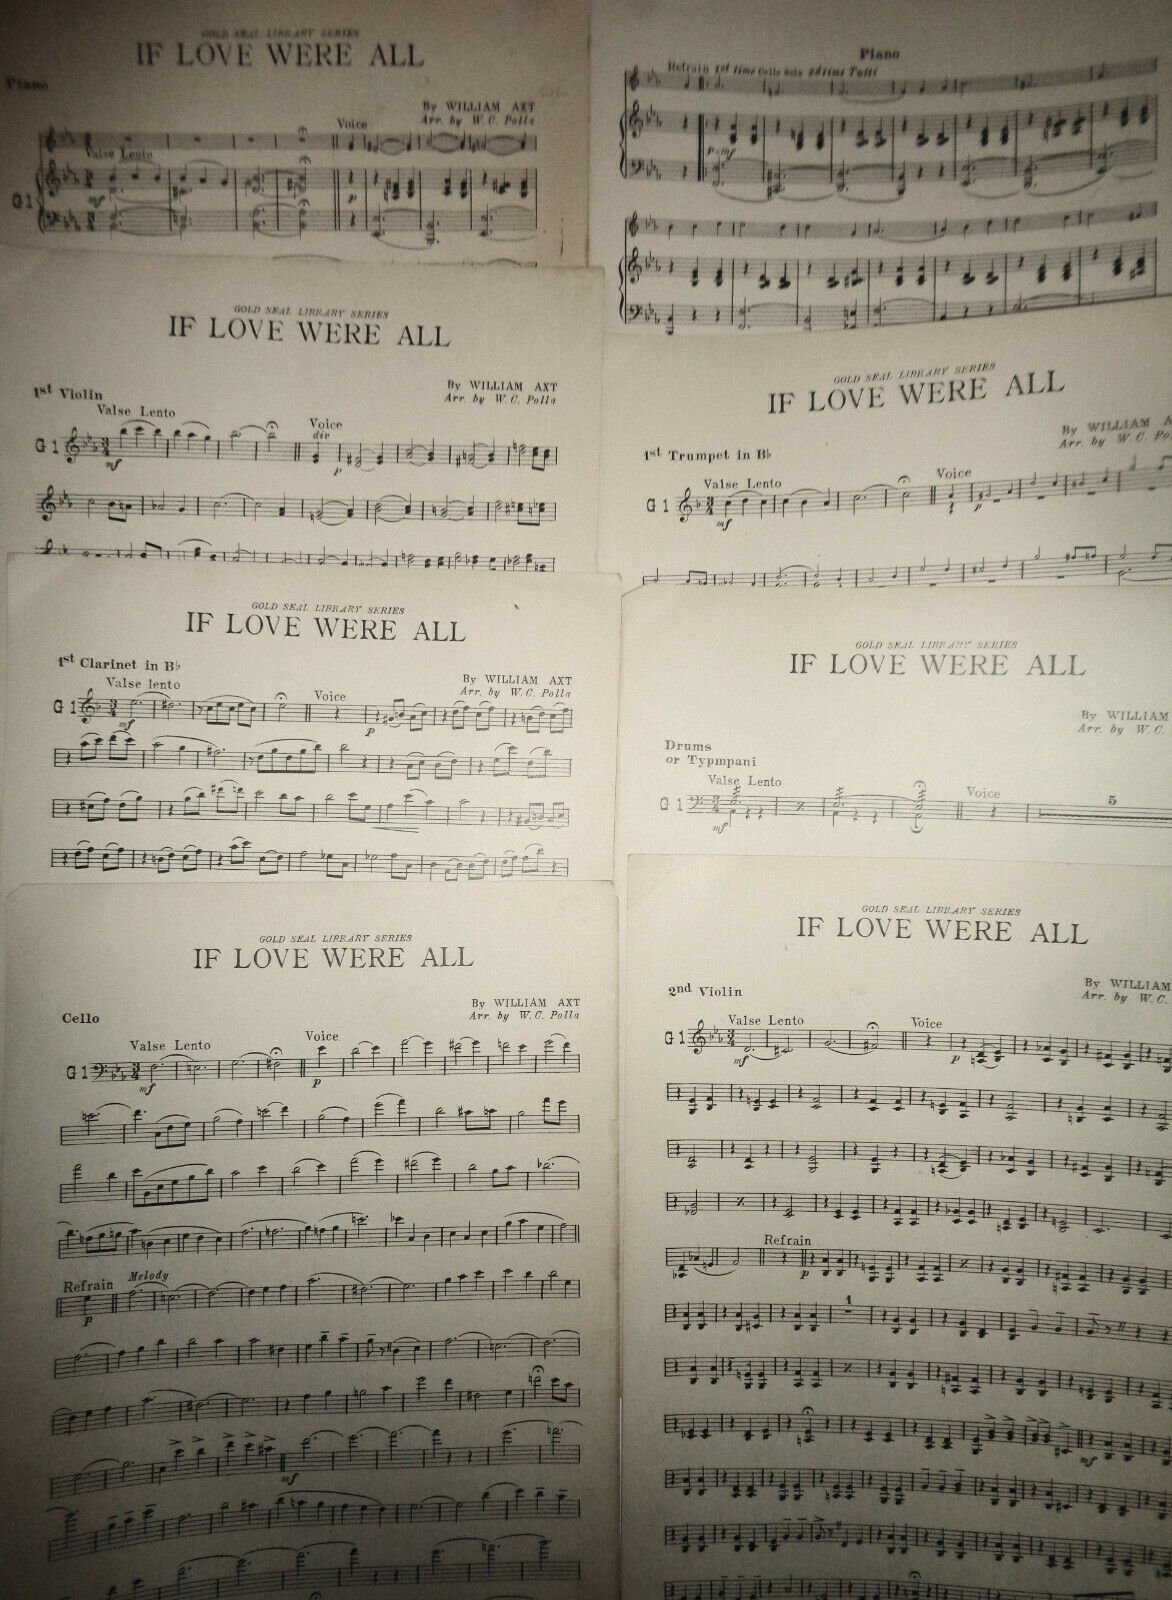 GOLD SEAL LIBRARY SERIES
IF LOVE WERE ALL
Piano
By WILLIAM AXT
Arr. by W. C. Polla
Voice
Valse Lento
G 1
mf
Piano
Refrain 1st time Cello Solo 2d time Tutti
p-mf
GOLD SEAL LIBRARY SERIES
IF LOVE WERE ALL
1st Violin
By WILLIAM AXT
Arr. by W. C. Polla
Valse Lento
Voice
div
G 1
mf
p
GOLD SEAL LIBRARY SERIES
IF LOVE WERE ALL
By WILLIAM A
Arr. by W. C. Po
1st Trumpet in B♭
Valse Lento
Voice
G 1
mf
p
GOLD SEAL LIBRARY SERIES
IF LOVE WERE ALL
1st Clarinet in B♭
By WILLIAM AXT
Arr. by W. C. Polla
Valse lento
Voice
G 1
mf
p
GOLD SEAL LIBRARY SERIES
IF LOVE WERE ALL
By WILLIAM
Arr. by W. C.
Drums
or Typmpani
Valse Lento
Voice
5
G 1
mf
GOLD SEAL LIBRARY SERIES
IF LOVE WERE ALL
Cello
By WILLIAM AXT
Arr. by W. C. Polla
Valse Lento
Voice
G 1
mf
p
Refrain Melody
p
mf
GOLD SEAL LIBRARY SERIES
IF LOVE WERE ALL
2nd Violin
By WILLIAM
Arr. by W. C.
Valse Lento
Voice
G 1
mf
p
Refrain
p
1
mf